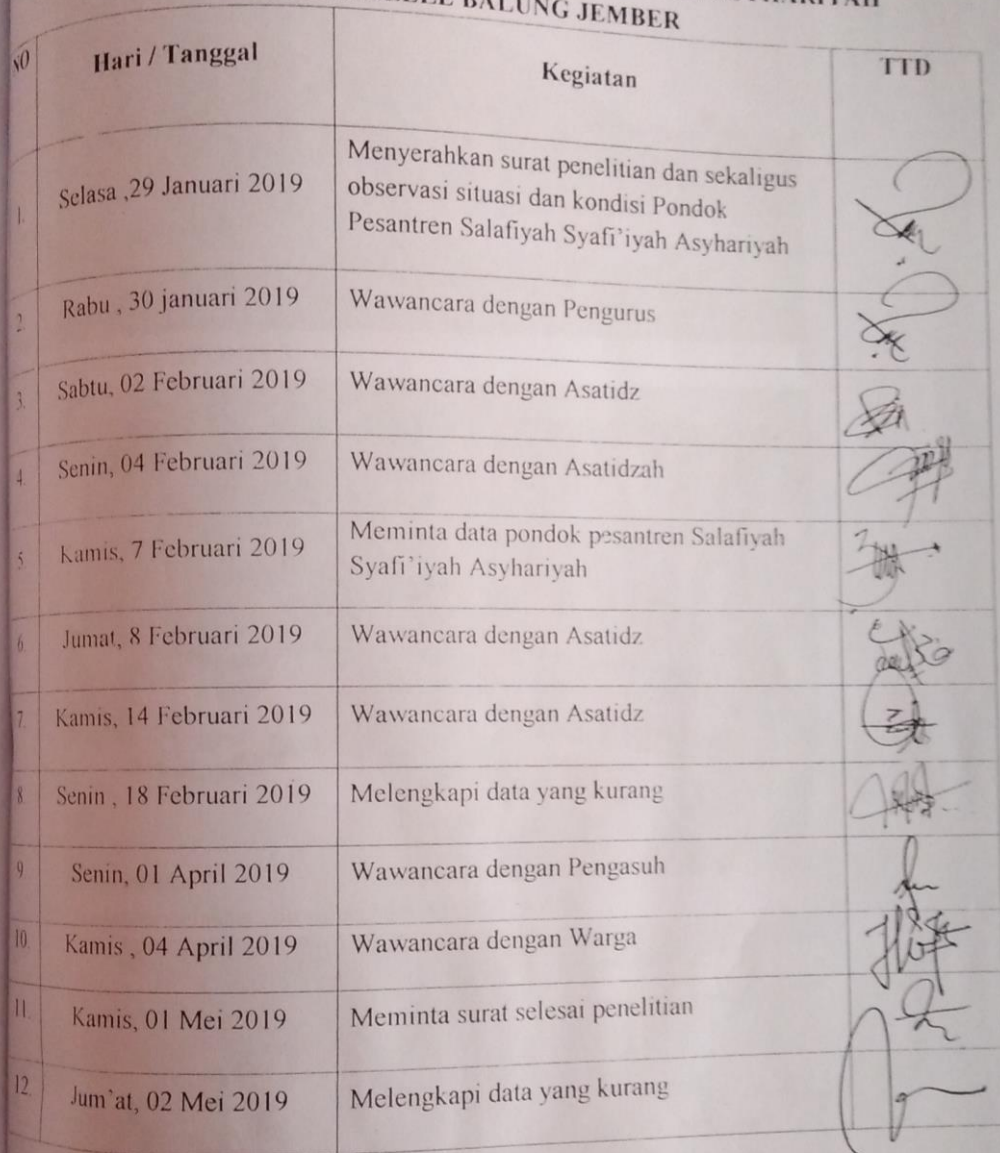 BALUNG JEMBER
NO Hari / Tanggal Kegiatan TTD
1. Selasa ,29 Januari 2019 Menyerahkan surat penelitian dan sekaligus
observasi situasi dan kondisi Pondok
Pesantren Salafiyah Syafi’iyah Asyhariyah
2. Rabu , 30 januari 2019 Wawancara dengan Pengurus
3. Sabtu, 02 Februari 2019 Wawancara dengan Asatidz
4. Senin, 04 Februari 2019 Wawancara dengan Asatidzah
5. Kamis, 7 Februari 2019 Meminta data pondok pesantren Salafiyah
Syafi’iyah Asyhariyah
6. Jumat, 8 Februari 2019 Wawancara dengan Asatidz
7. Kamis, 14 Februari 2019 Wawancara dengan Asatidz
8. Senin , 18 Februari 2019 Melengkapi data yang kurang
9. Senin, 01 April 2019 Wawancara dengan Pengasuh
10. Kamis , 04 April 2019 Wawancara dengan Warga
11. Kamis, 01 Mei 2019 Meminta surat selesai penelitian
12. Jum’at, 02 Mei 2019 Melengkapi data yang kurang